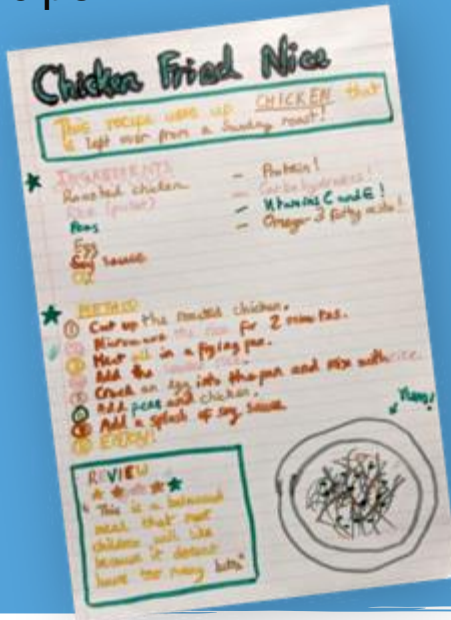 Chicken Fried Nice
This recipe uses up CHICKEN that
is left over from a Sunday roast!
INGREDIENTS
Roasted chicken - Protein!
Rice - Carbohydrates!
Peas - Vitamins C and E!
Egg - Omega 3 fatty acids!
Soy sauce
Oil
METHOD
① Cut up the roasted chicken.
② Microwave the rice for 2 minutes.
③ Heat oil in a frying pan.
④ Add the rice.
⑤ Crack an egg into the pan and mix with rice.
⑥ Add peas and chicken.
⑦ Add a splash of soy sauce.
⑧ ENJOY!
Yum!
REVIEW
"This is a balanced
meal that most
children will like
because it doesnt
have too many bits"